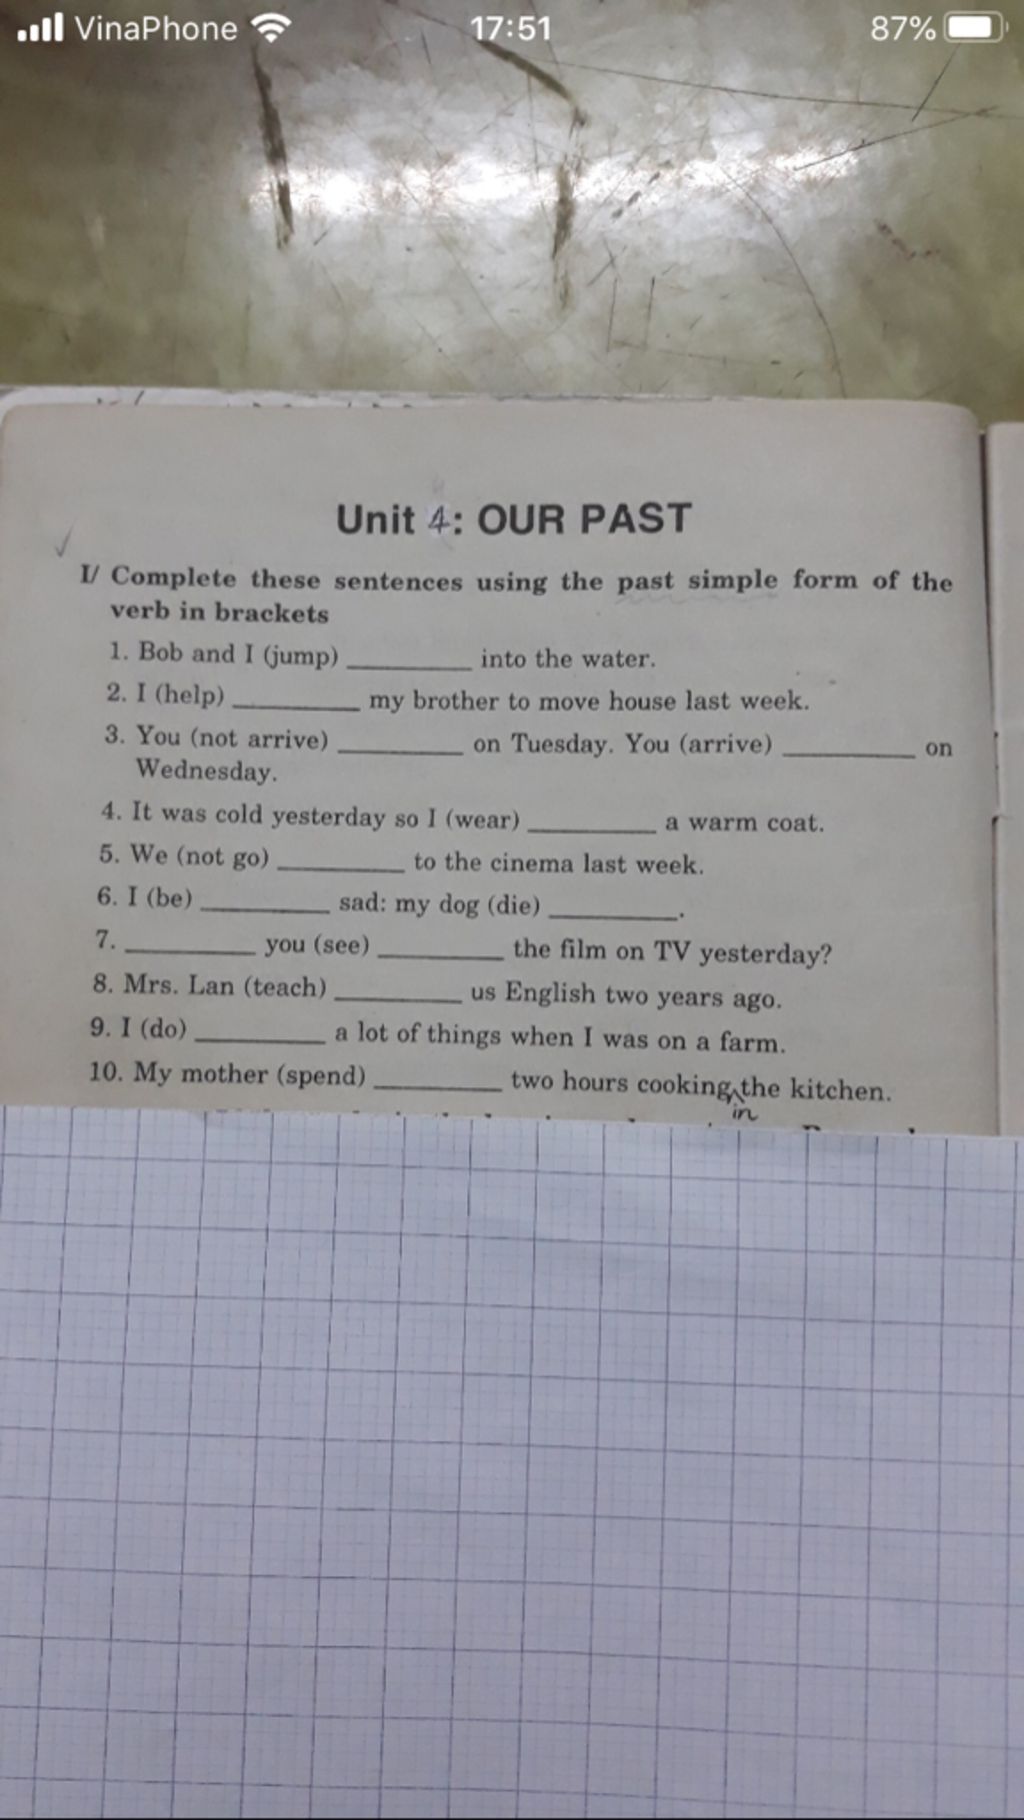 VinaPhone 17:51 87%
Unit 4: OUR PAST
I/ Complete these sentences using the past simple form of the
verb in brackets
1. Bob and I (jump) __________ into the water.
2. I (help) __________ my brother to move house last week.
3. You (not arrive) __________ on Tuesday. You (arrive) __________ on
Wednesday.
4. It was cold yesterday so I (wear) __________ a warm coat.
5. We (not go) __________ to the cinema last week.
6. I (be) __________ sad: my dog (die) __________.
7. __________ you (see) __________ the film on TV yesterday?
8. Mrs. Lan (teach) __________ us English two years ago.
9. I (do) __________ a lot of things when I was on a farm.
10. My mother (spend) __________ two hours cooking the kitchen.
in